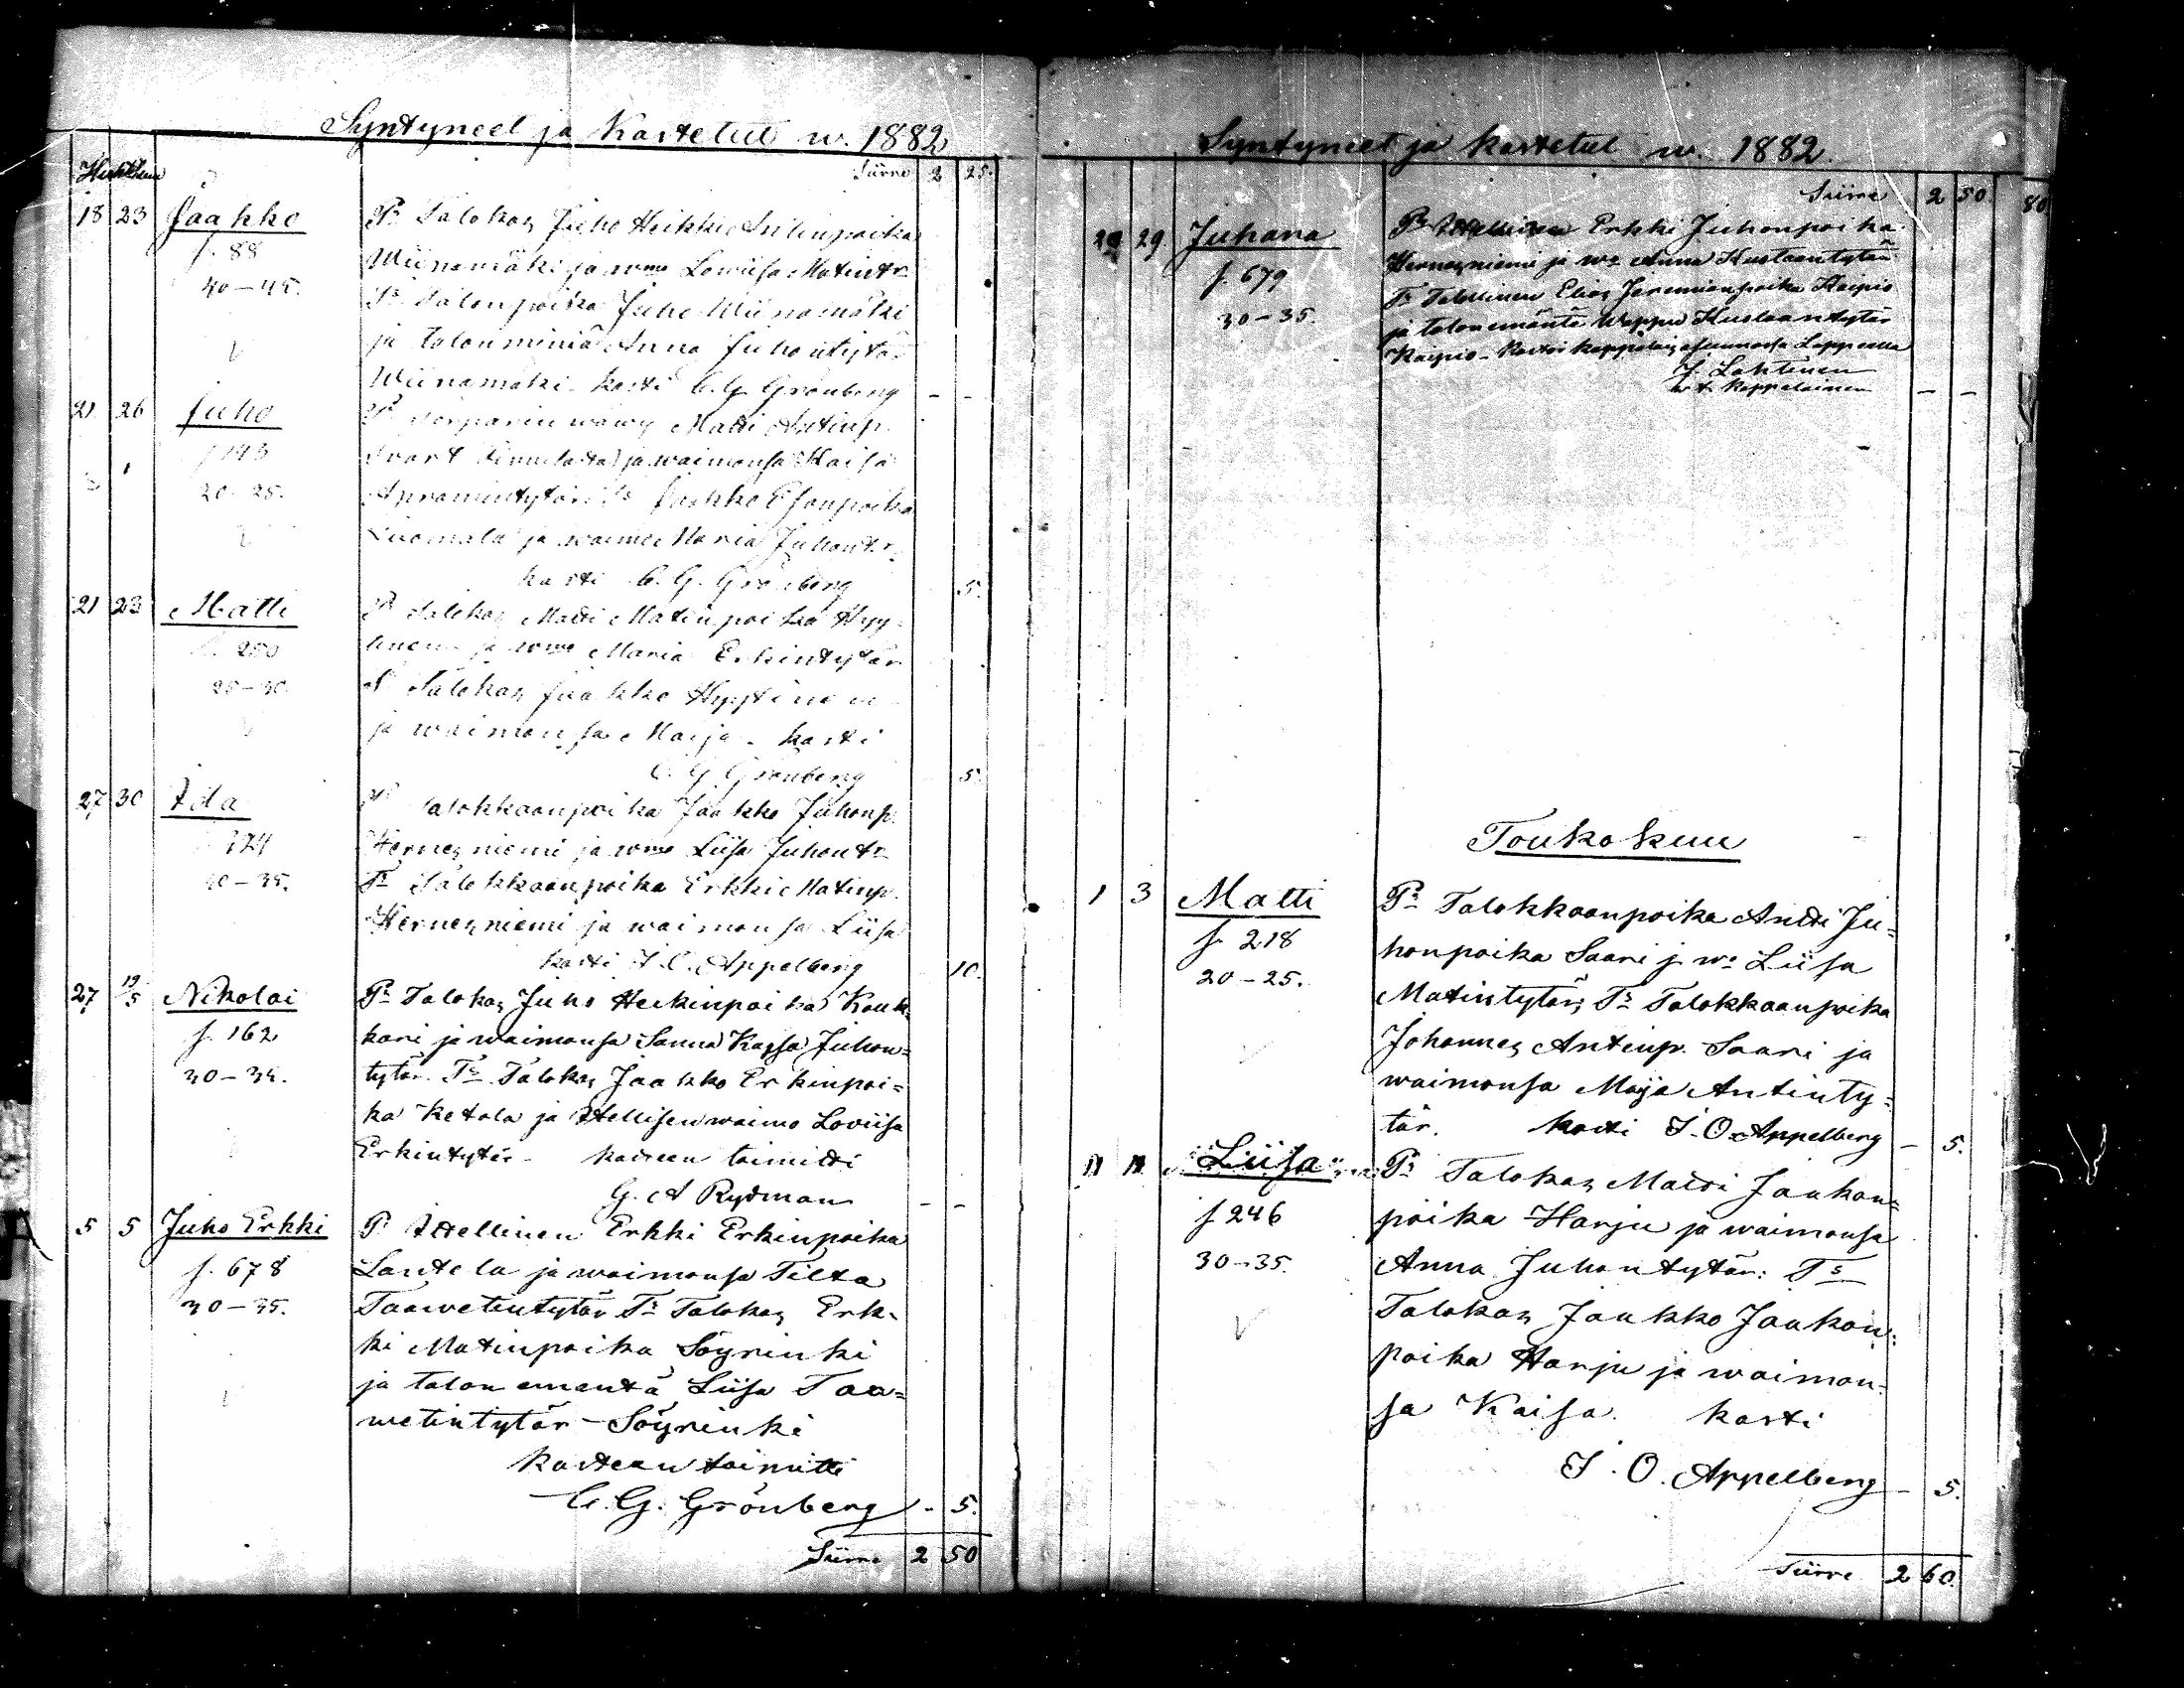 Syntyneet ja Kastetut w. 1882
Huhtikuu
Siirre 2 25.
18 23 Jaakko
f. 88
40-45.
Ps Talokas Juho Heikki
Wiinamäki ja wmo Lowiisa Matintr
Ts Talonpoika Juho Wiinamäki
ja talonminiä Anna Juhontytär
Wiinamäki. kasti C. G. Grönberg - -
21 26 Juho
f 143
20-25.
Ps torparin wäwy Matti Antinp.
ja waimonsa Kaisa
Apramintytär. Ts Jaakko Esanpoika
Luomala ja waimo Maria Juhontr.
kasti C. G. Grönberg 5.
21 23 Matti
f. 250
25-30.
Ps Talokas Matti Matinpoika Hyy-
ja wmo Maria Erkintytär
Ts Talokas Jaakko
ja waimonsa Maija. kasti
C. G. Grönberg 5.
27 30 Ida
30-35.
Ps Talokkaanpoika Jaakko Juhonp.
Hernesniemi ja wmo Liisa Juhontr
Ts Talokkaanpoika Erkki Matinp.
Hernesniemi ja waimonsa Liisa
kasti I. O. Appelberg 10.
27 19/5 Nikolai
f. 162
30-35.
Ps Talokas Juho Heikinpoika Kouk-
kari ja waimonsa Sanna Kajsa Juhon-
tytär. Ts Talokas Jaakko Erkinpoi-
ka Ketola ja Itellisenwaimo Loviisa
Erkintytär - kasteen toimitti
G. A Rydman - -
5 5 Juho Erkki
f. 678
30-35.
Ps Itellinen Erkki Erkinpoika
Lantela ja waimonsa Tilta
Taawetintytär Ts Talokas Erk-
ki Matinpoika Söyrinki
ja talon emäntä Liisa Taa-
wetintytär - Söyrinki
kasteen toimitti
C. G. Grönberg - 5.
Siirre 2 50
Syntyneet ja kastetut w. 1882.
Siirre 2 50. 80
29 Juhana
f. 679
30-35.
Ps Itellinen Erkki Juhonpoika
Hernesniemi ja wo Anna Kustaantytär
Ts Talollinen Elias Jeremianpoika Kaipio
ja talonemäntä Wappu Kustaantytär
Kaipio - Kastoi kappelais Lappessa
J. Lahtinen
w. t. kappalainen - -
Toukokuu
1 3 Matti
f. 218
20-25.
Ps Talokkaanpoika Antti Ju-
honpoika Saari j. wo Liisa
Matintytär; Ts Talokkaanpoika
Johannes Antinp. Saari ja
waimonsa Maija Antinty-
tär. kasti I. O. Appelberg - 5.
Liisa
f 246
30-35.
Ps Talokas Matti Jaakon-
poika Harju ja waimonsa
Anna Juhontytär: Ts
Talokas Jaakko Jaakon-
poika Harju ja waimon-
sa Kaisa. kasti
I. O. Appelberg - 5.
Siirre 2 60.